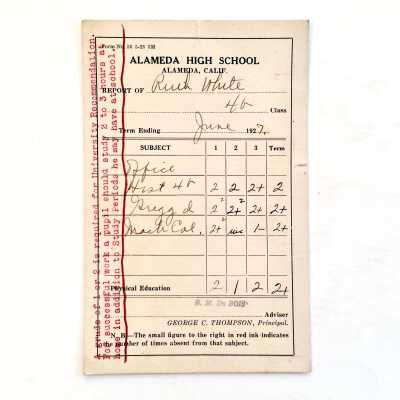 Form No. 16 5-25 5M
ALAMEDA HIGH SCHOOL
ALAMEDA, CALIF.
REPORT OF Ruth White
4b Class
Term Ending June 1927.
SUBJECT 1 2 3 Term
Office
Hist 4b 2 2 2+ 2
Gregg d 2 2 2+ 2 2+ 2+
Mach Cal. 2+ inc 2 1- 2+
Physical Education 2 1 2 2+
S. M. Du BOIS
Adviser
GEORGE C. THOMPSON, Principal.
N. B.—The small figure to the right in red ink indicates
the number of times absent from that subject.
A grade of 1 or 2 is required for University Recommendation.
For successful work a pupil should study 2 to 3 hours at
home in addition to Study Periods he may have at school.